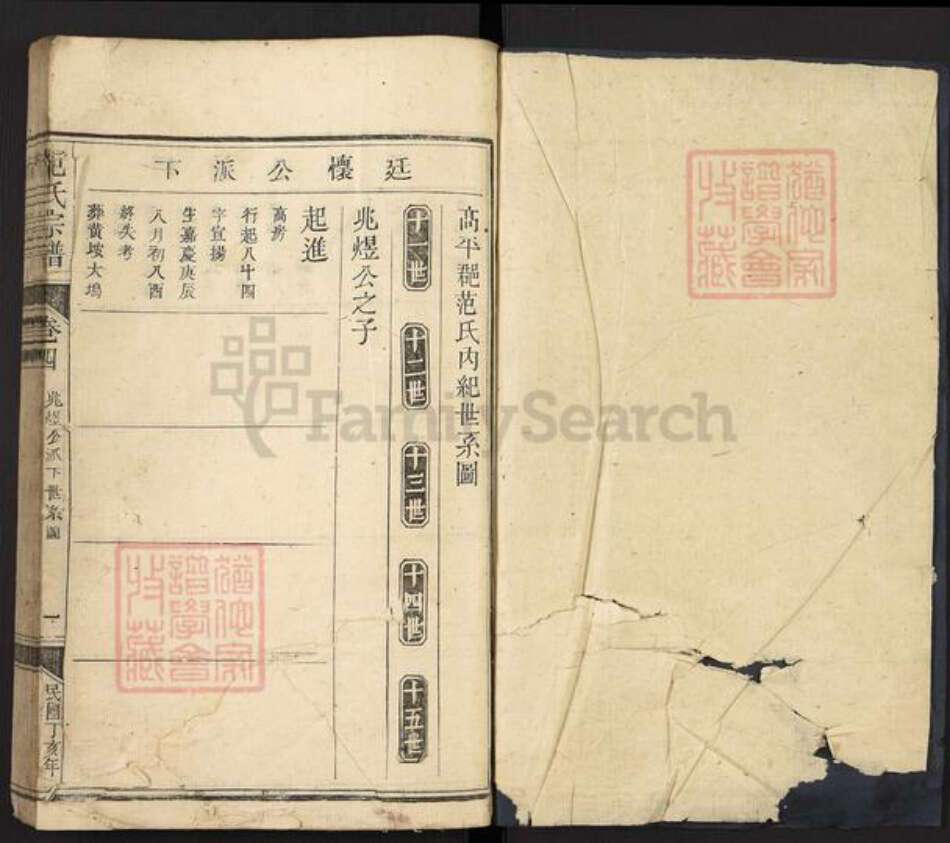 廷懷公派下
高平郡范氏內紀世系圖
十一世
十二世
十三世
十四世
十五世
兆煜公之子
起進
高房
行起八十四
字宣揚
生嘉慶庚辰
八月初八酉
終失考
葬黃垵大塢
范氏宗譜
卷四
兆煜公派下世系圖
一
民國丁亥年
FamilySearch